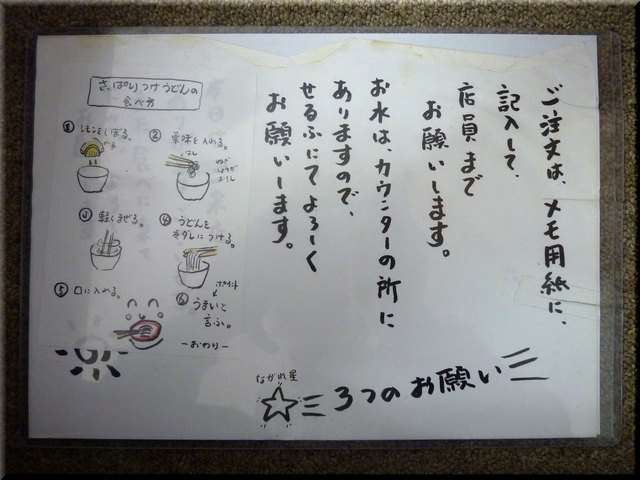 ご注文は、メモ用紙に、
記入して、
店員まで
お願いします。
お水は、カウンターの所に
ありますので、
せるふにてよろしく
お願いします。
ながれ星
3つのお願い
さっぱりつけうどんの
食べ方
① レモンをしぼる。
② 薬味を入れる。
はし
ねぎ
しょうが
おろし
③ 軽くまぜる。
④ うどんを
冷ダレにつける。
⑤ 口に入れる。
⑥ うまいと
言ふ。
ポイント
ーおわりー